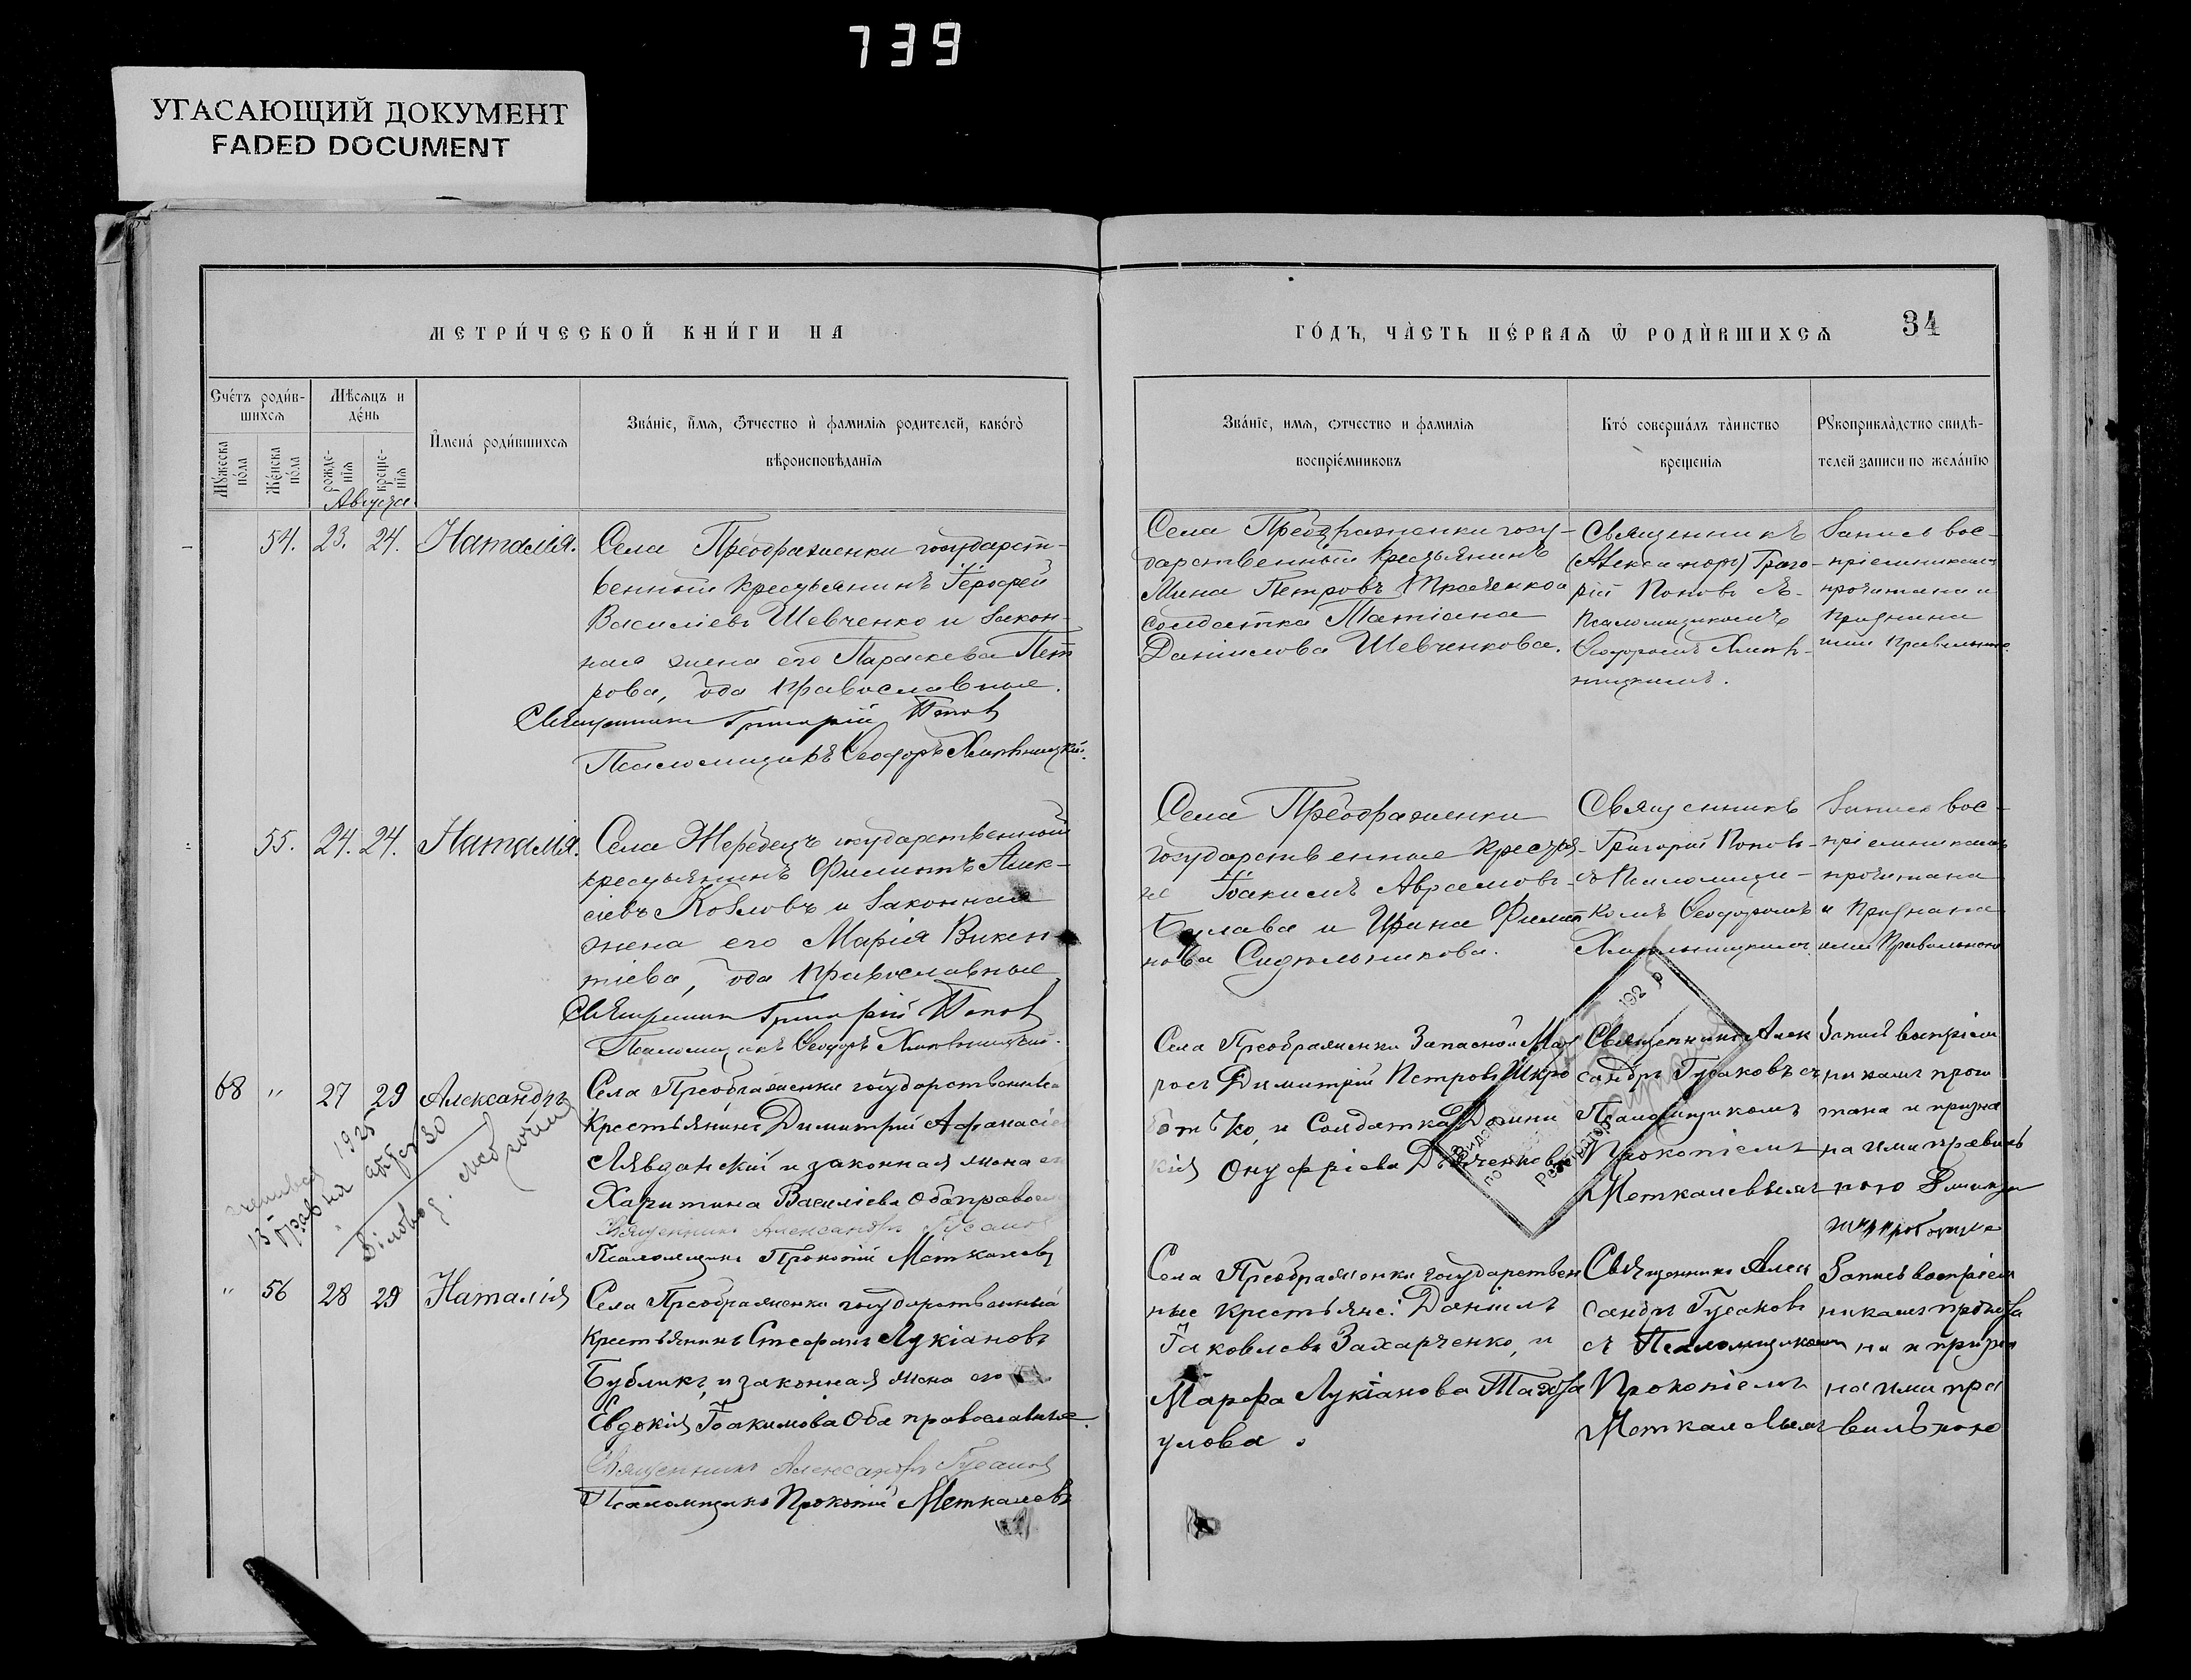 739
УГАСАЮЩИЙ ДОКУМЕНТ
FADED DOCUMENT
МЕТРИ́ЧЕСКОЙ КНИ́ГИ НА
ГО́ДЪ, ЧА̀СТЬ ПЕ́РВАЯ Ѿ РОДЍВШИХСѦ
34
Сче́тъ роди́в-
шихсѧ
Мѣ́сѧцъ и
де́нь
Мꙋ́жеска по́ла
Же́нска по́ла
рожде́-
нїѧ
креще́-
нїѧ
И҆мена́ роди́вшихсѧ
Зва́нїе, и҆́мѧ, ѻ҆́тчество и҆ фамилїѧ родителей, како́гѡ
вѣроисповѣ́данїѧ
Зва́нїе, имѧ, ѻтчество и фамилїѧ
воспрїе́мниковъ
Кто́ соверша́лъ та́инство
креще́нїѧ
Рꙋкоприкла́дство свидѣ́-
телей записи по жела́нїю
Августа
54. 23. 24. Наталія.
Села Преображенки государст-
венный крестьянинъ Іерофей
Василіевъ Шевченко и закон-
ная жена его Параскева Пет
рова, оба православные.
Священникъ Григорій Попов
Псаломщикъ Ѳеодоръ Хмѣльницкій.
Села Преображенки госу-
дарственный крестьянинъ
Мина Петровъ
солдатка Татіана
Даніилова Шевченкова.
Священникъ
(Александръ) Григо-
рій Поповъ съ
Псаломщикомъ
Ѳеодоромъ Хмѣль-
ницкимъ.
Запись вос-
пріемникамъ
прочитана и
признана
ими правильною
55. 24. 24. Наталія.
Села Жеребецъ государственный
крестьянинъ Филиппъ Алек-
сіевъ Козловъ и законная
жена его Марія Викен-
тіева, оба православные
Священникъ Григорій Попов
Псаломщикъ Ѳеодоръ Хмѣльницкій.
Села Преображенки
государственные крестья-
не Іоакимъ Аврамовъ
Булава и Ирина Филип
пова Сидельникова.
Священникъ
Григорій Поповъ
съ Псаломщи-
комъ Ѳеодоромъ
Хмѣльницкимъ.
Запись вос-
пріемникамъ
прочитана
и признана
ими правильною
68 " 27 29 Александръ
Села Преображенки государственный
крестьянинъ Димитрій Афанасіев
Лявданскій и законная жена его
Харитина Василіева оба правосл
Священникъ Александръ Гусаков
Псаломщикъ Прокопій Меткалевъ
Села Преображенки Запасной Мат
росъ Димитрій Петровъ Шкро
ботько, и Солдатка Домни
кія Онуфріева Дяченкова
Священникъ Алек
сандръ Гусаковъ съ
Псаломщикомъ
Прокопіемъ
Меткалевымъ
Запись воспріем
никамъ прочи
тана и призна
на ими правиль
ною
1925
192 р
" 56 28 29 Наталія
Села Преображенки государственный
крестьянинъ Стефанъ Лукіановъ
Бубликъ, и законная жена его
Евдокія Іоакимова оба православные.
Священникъ Александръ Гусаков
Псаломщикъ Прокопій Меткалевъ
Села Преображенки государствен
ные крестьяне: Даніилъ
Іаковлевъ Захарченко, и
Марфа Лукіанова
улова.
Священникъ Алек
сандръ Гусаковъ
съ Псаломщикомъ
Прокопіемъ
Меткалевымъ
Запись воспріем
никамъ прочита
на и призна
на ими пра
вильною